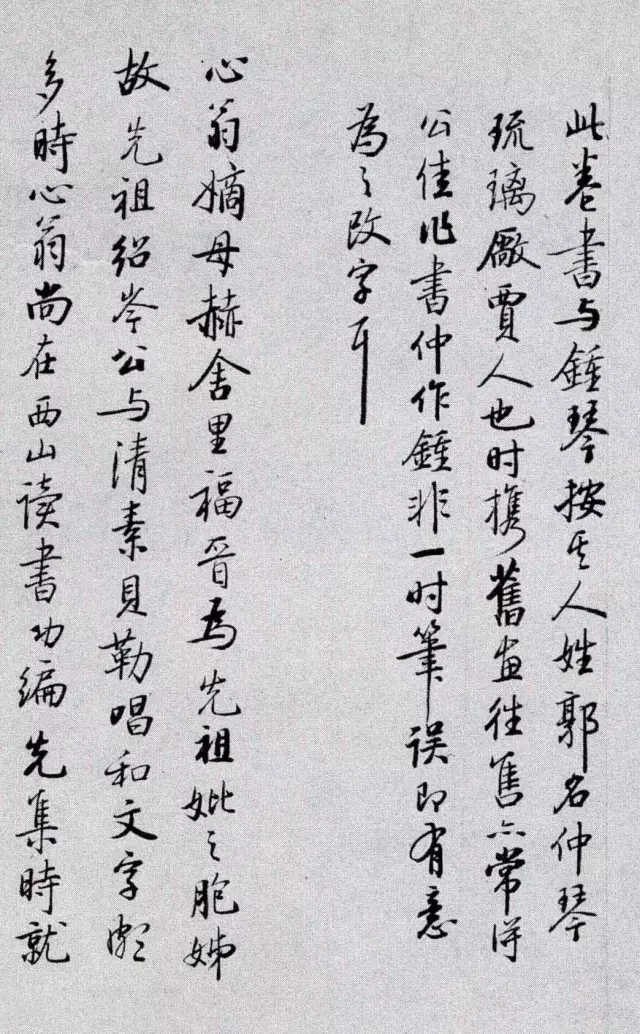 此卷書与鍾琴按其人姓郭名仲琴
琉璃厰賈人也时携舊畫往售亦常得
公佳作書仲作鍾非一时筆誤即有意
為之改字耳
心翁嫡母赫舍里福晋為先祖妣之胞姊
故先祖绍岑公与清素貝勒唱和文字頗
多時心翁尚在西山读書功编先集時就